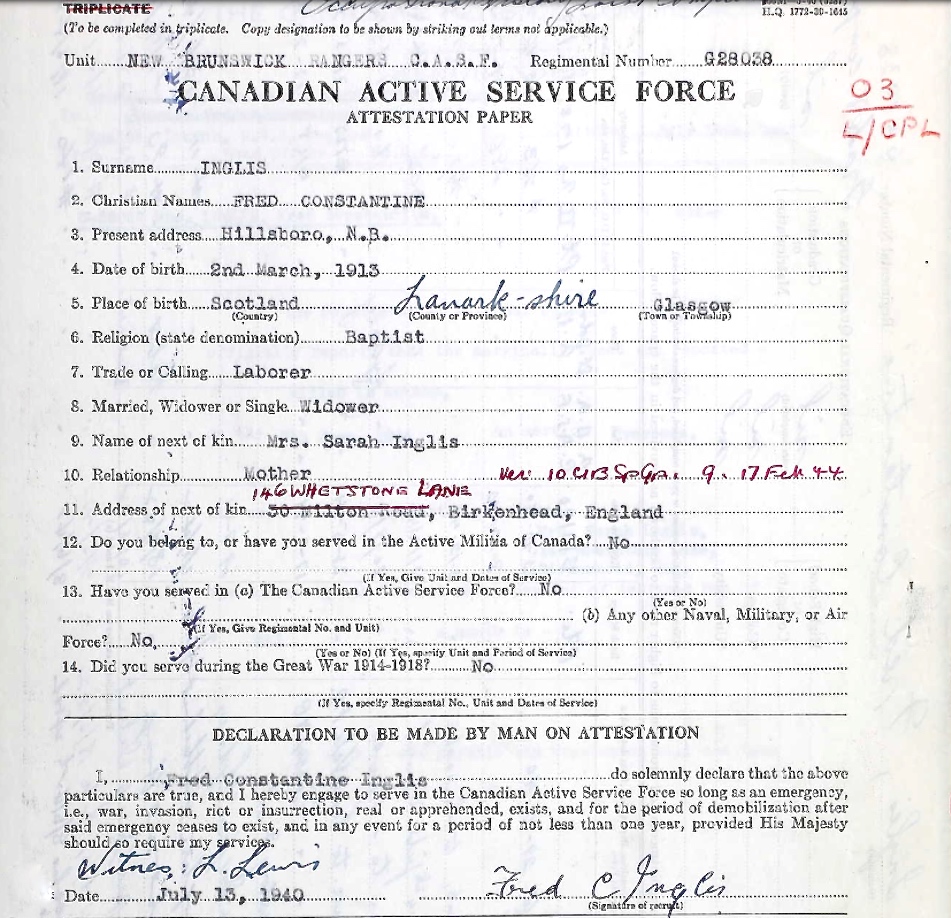 TRIPLICATE
H.Q. 1772-39-1615
(To be completed in triplicate. Copy designation to be shown by striking out terms not applicable.)
Unit NEW BRUNSWICK RANGERS C.A.S.F. Regimental Number G28038
CANADIAN ACTIVE SERVICE FORCE
ATTESTATION PAPER
03
L/CPL
1. Surname INGLIS
2. Christian Names FRED CONSTANTINE
3. Present address Hillsboro, N.B.
4. Date of birth 2nd March, 1913
5. Place of birth Scotland Lanark-shire Glasgow
(Country) (County or Province) (Town or Township)
6. Religion (state denomination) Baptist
7. Trade or Calling Laborer
8. Married, Widower or Single Widower
9. Name of next of kin Mrs. Sarah Inglis
10. Relationship Mother Ver: 10 CIB Sp Gp. 9. 17 Feb 44
146 WHETSTONE LANE
11. Address of next of kin 30 Milton Road, Birkenhead, England
12. Do you belong to, or have you served in the Active Militia of Canada? No
(If Yes, Give Unit and Dates of Service)
13. Have you served in (a) The Canadian Active Service Force? No
(Yes or No)
(b) Any other Naval, Military, or Air
(If Yes, Give Regimental No. and Unit)
Force? No,
(Yes or No) (If Yes, specify Unit and Period of Service)
14. Did you serve during the Great War 1914-1918? No
(If Yes, specify Regimental No., Unit and Dates of Service)
DECLARATION TO BE MADE BY MAN ON ATTESTATION
I, Fred Constantine Inglis do solemnly declare that the above
particulars are true, and I hereby engage to serve in the Canadian Active Service Force so long as an emergency,
i.e., war, invasion, riot or insurrection, real or apprehended, exists, and for the period of demobilization after
said emergency ceases to exist, and in any event for a period of not less than one year, provided His Majesty
should so require my services.
Witness: L. Lewis
Date July 13, 1940 Fred C Inglis
(Signature of recruit)